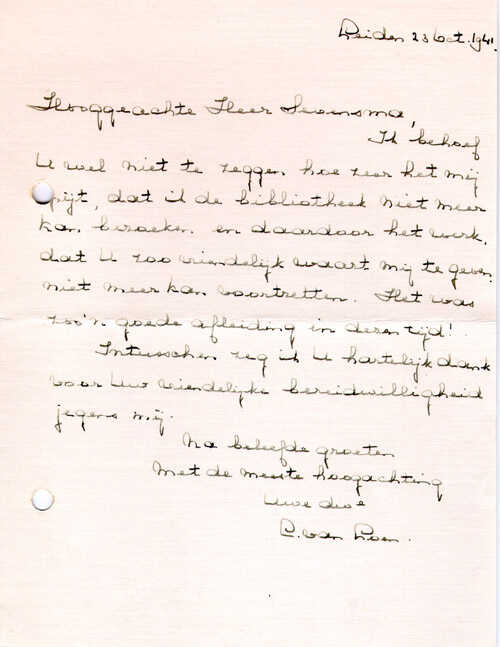 Leiden 23 Oct. 1941.
Hooggeachte Heer Sevensma,
Ik behoef
U wel niet te zeggen hoe zeer het mij
spijt, dat ik de bibliotheek niet meer
kan bezoeken en daardoor het werk,
dat U zoo vriendelijk waart mij te geven
niet meer kan voortzetten. Het was
zoo'n goede afleiding in dezen tijd!
Intusschen zeg ik U hartelijk dank
voor Uw vriendelijke bereidwilligheid
jegens mij.
Na beleefde groeten
Met de meeste hoogachting
Uwe dw̃e
C. van